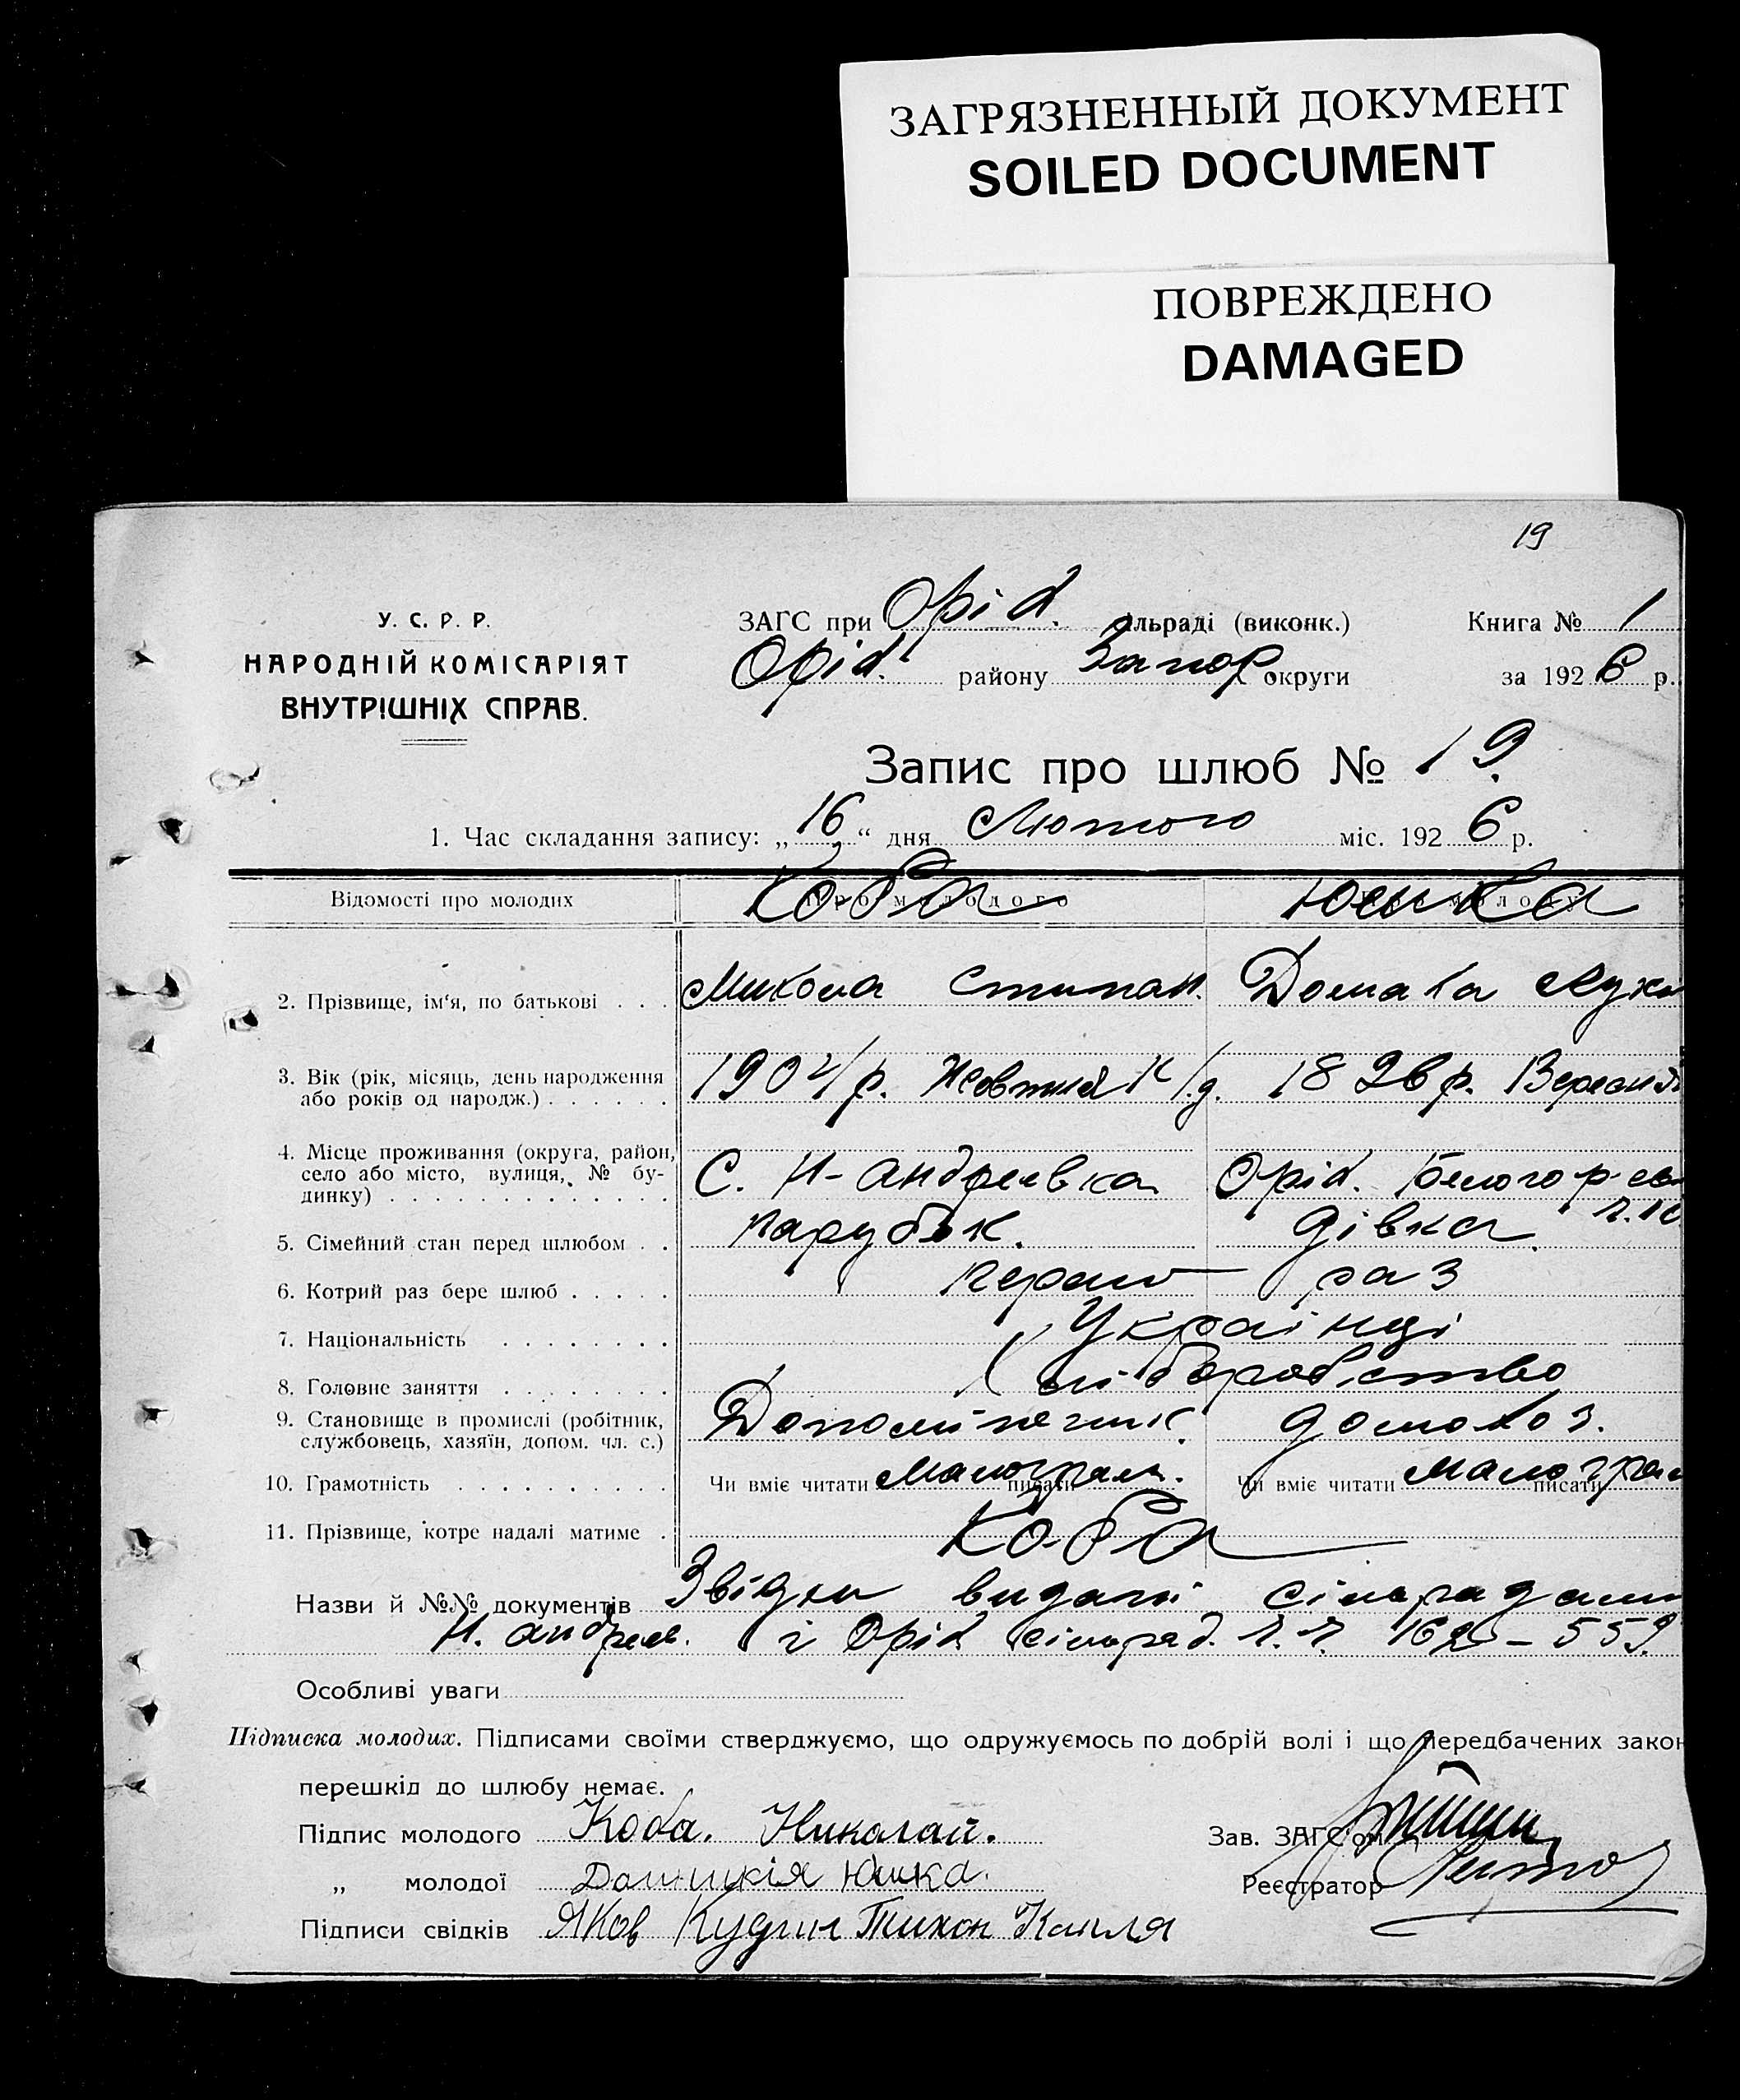 ЗАГРЯЗНЕННЫЙ ДОКУМЕНТ
SOILED DOCUMENT
ПОВРЕЖДЕНО
DAMAGED
19
У. С. Р. Р.
НАРОДНІЙ КОМІСАРІЯТ
ВНУТРІШНІХ СПРАВ.
ЗАГС при Оріх. сільраді (виконк.)
Книга № 1
Оріх. району Запор округи
за 1926 р.
Запис про шлюб № 19.
1. Час складання запису: „16“ дня Лютого міс. 1926 р.
Відомості про молодих Про молодого Про молоду
Коба Юшка
2. Прізвище, ім‘я, по батькові . . . Микола Степан. Домаха Лук
3. Вік (рік, місяць, день народження
або років од народж.) . . . . . . 1904/р. Жовтня 1896р. Вересня
4. Місце проживання (округа, район,
село або місто, вулиця, № бу-
динку) . . . . . . . . . . . . . С. Н-Андреевка Оріх. Білогор
5. Сімейний стан перед шлюбом . . парубок. дівка.
6. Котрий раз бере шлюб . . . . . перший раз
7. Національність . . . . . . . Українці
8. Головне заняття . . . . . . . хліборобство
9. Становище в промислі (робітник,
службовець, хазяїн, допом. чл. с.) домохоз.
10. Грамотність . . . . . . . . . . Чи вміє читати Малограм. писати Чи вміє читати малограм писати
11. Прізвище, котре надалі матиме . Коба
Назви й №№ документів Звідки видані сільрадами
Н. Андреев. і Оріх сільрад. 162 – 559.
Особливі уваги
Підписка молодих. Підписами своїми стверджуємо, що одружуємось по добрій волі і що передбачених закон
перешкід до шлюбу немає.
Підпис молодого Коба. Николай.
Зав. ЗАГС'ом
„ молодої Юшка.
Реєстратор
Підписи свідків Яков Тихон